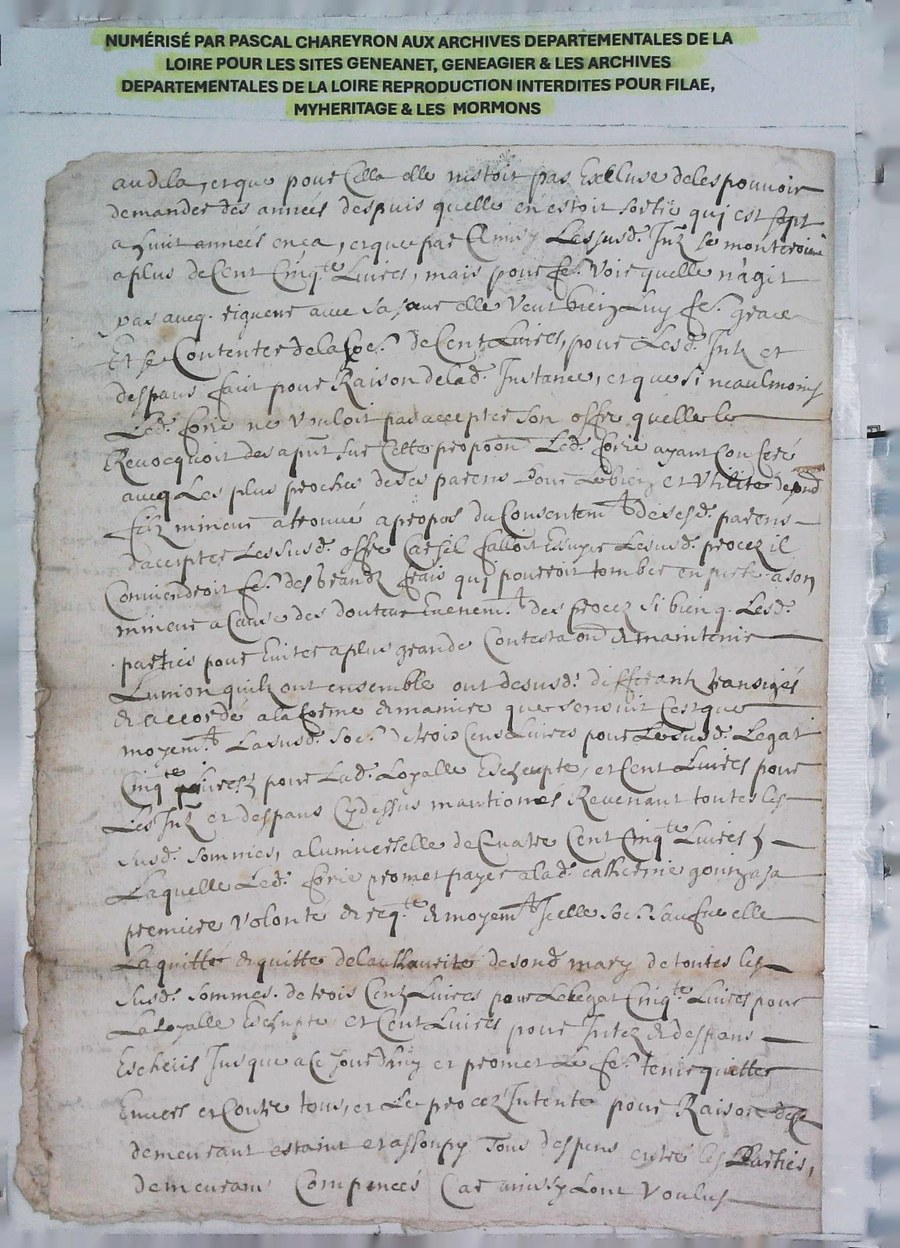 NUMÉRISÉ PAR PASCAL CHAREYRON AUX ARCHIVES DEPARTEMENTALES DE LA
LOIRE POUR LES SITES GENEANET, GENEAGIER & LES ARCHIVES
DEPARTEMENTALES DE LA LOIRE REPRODUCTION INTERDITES POUR FILAE,
MYHERITAGE & LES MORMONS
audela, et que pour Cella elle nestoit pas Excluse deles pouvoir
demander des années despuis quelle en estoit sortie qui est sept
a huit années ença, et que par Lessusd. Intz se monteroient
a plus de Cent Cinqte Livres, mais pour fe. Voir quelle n'agit
pas avecq. rigueur avec sa sœur elle Veut bien Luy fe. grace
Et se Contenter de la soe. de Cent Livres, pour Lesd. Intz et
despans fait pour Raison delad. Instance, et que si neaulmoins
Led. forie ne Vouloit pas accepter son offre quelle le
Revocquoit des apnt sur Cette propoon Led. forie ayant Conferé
avecq Les plus proches de ses parens Pour Le bien et Utilité desond
filz mineur a trouvé a propos du Consentemt de sesd. parens
daccepter Lessusd. offre Car sil falloit Essuyer Lesusd. procez il
Conviendroit fe. des grandz frais qui pourroit tomber en perte a son
mineur a Cause des douteux Evenemt des procez si bien q. Lesd.
parties pour Eviter a plus grande Contestaon & maintenir
Lunion quilz ont ensemble ont desusd. differant transigés
& accordé a la forme & maniere que sensuit Cest que
moyent Lasusd. soe. de trois Cens Livres pour Lesusd. Legat
Cinqte Livres pour Lad. Loyalle Escheupte, et Cent Livres pour
Les Intz et despans Cy dessus mantionés Revenant toutes les
susd. sommes, a Luniverselle de Quatre Cent Cinqte Livres
Laquelle Led. forie promet payer a lad. catherine a sa
premiere Volonté & reqte & moyent Icelle soe. sauf que elle
La quitté & quitte de la authaurité de sond mary de toutes les
susd. sommes. de trois Centz Livres pour Le Legat Cinqte Livres pour
La loyalle Escheupte et Cent Livres pour Intez & despans
Escheus Jusque a Ce Jourdhuy et promet Le fe. tenir quitte
Envers et Contre tous, et Le procez Intenté pour Raison dece
demeurant estaint et assoupy Tous despens entre les Parties,
demeurans Compencés Car ainssy Lont Voulus